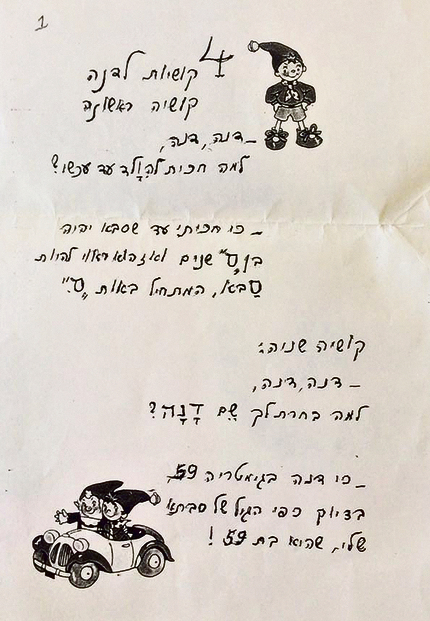 1
4 קושיות לדנה
קושיה ראשונה
_ דנה, דנה,
למה חכית להִוָּלד עד עכשו?
_ כי חכיתי עד שסבא יהיה
בן "ס" שנים ואז הוא ראוי להיות
סַבא, המתחיל באות "ס"
קושיה שניה:
_ דנה, דנה,
למה בחרת לך שֵׁם דָנָה?
_ כי דנה בגימטריה 59
בדיוק כפי הגיל של סבתי
שלי, שהיא בת 59!